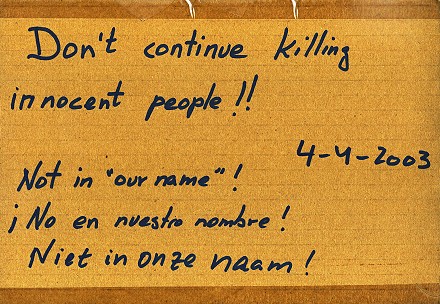 Don't continue killing
innocent people!!
4-4-2003
Not in "our name"!
¡No en nuestro nombre!
Niet in onze naam!